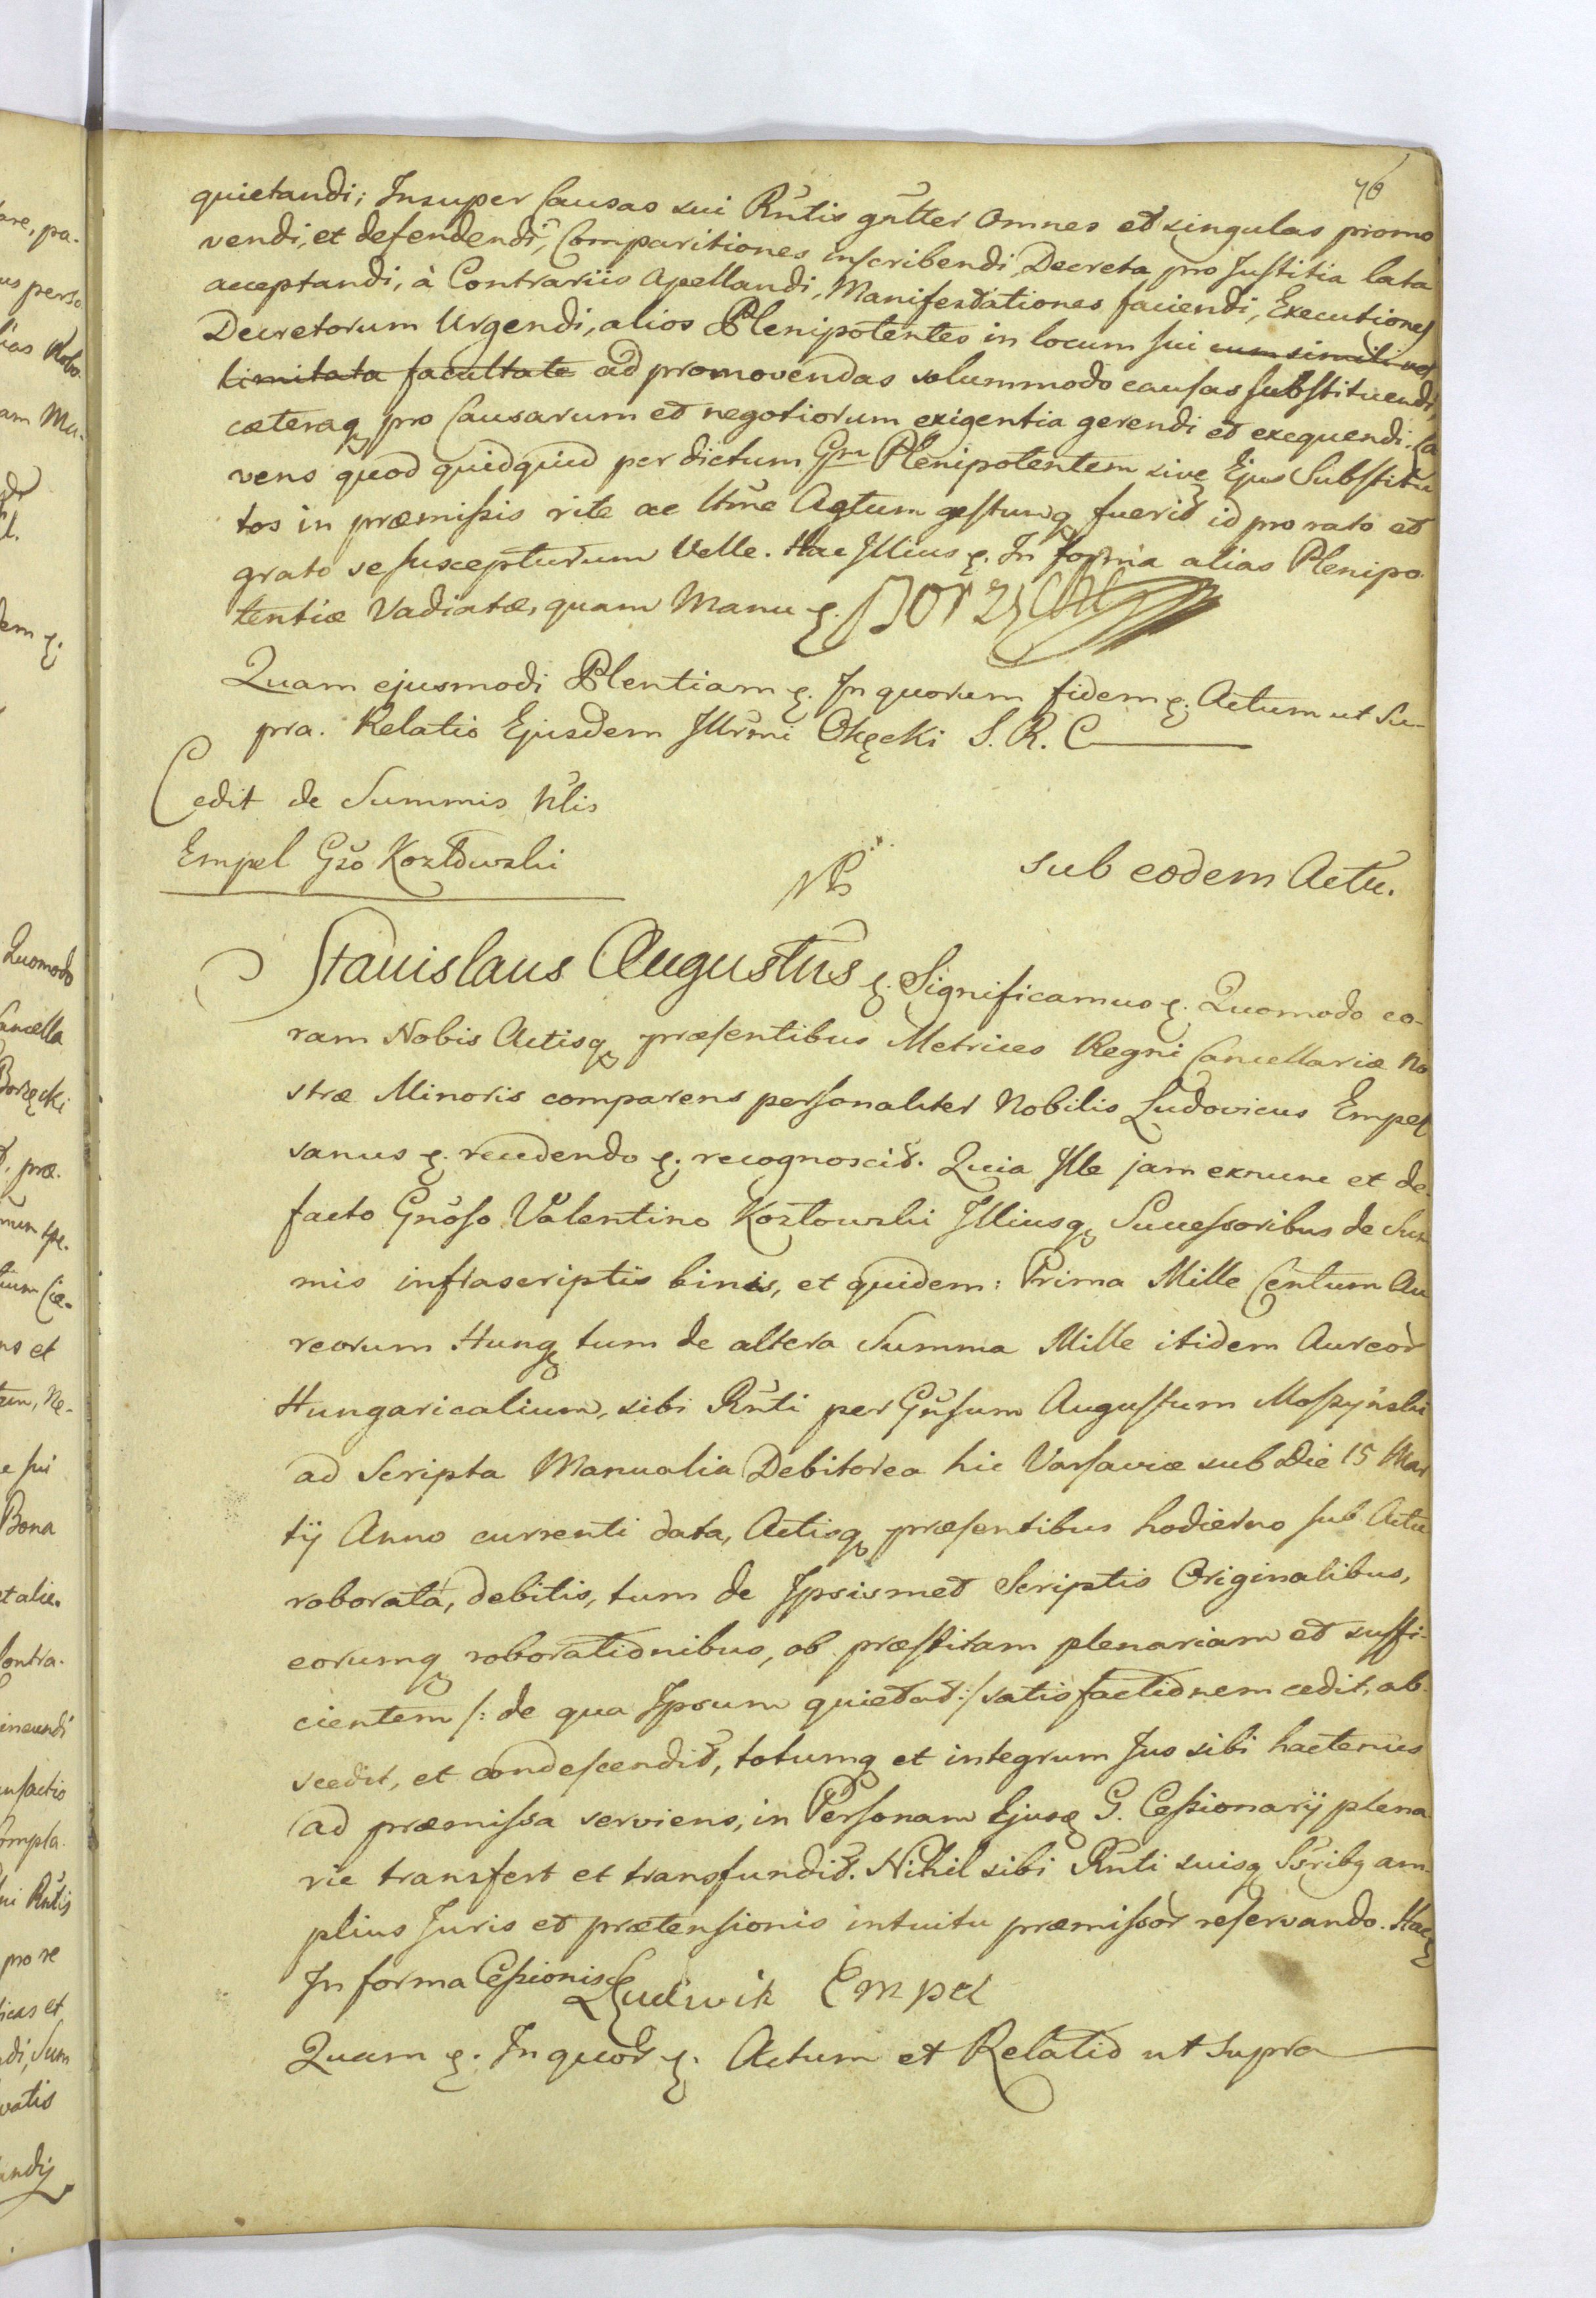 76
quietandi; Insuper Causas sui Rn̄tis gn̄lter Omnes et singulas promo
vendi, et defendendi, Comparitiones inscribendi, Decreta pro Justitia lata
acceptandi, à Contrariis Apellandi, Manifestationes faciendi, Executiones
Decretorum Urgendi, alios Plenipotentes in locum sui cum simili vel
limitata facultate ad promovendas solummodo causas substituendi,
cæteraq pro Causarum et negotiorum exigentia gerendi et exequendi. Ca
vens quod quidquid per dictum Gm Plenipotentem sive Ejus Substitu
tos in præmissis rite ac ltm̄e Actum gestumq fuerit id pro rato et
grato se suscepturum Velle. Hac Illius &. In forma alias Plenipo
tentiæ Vadiatæ, quam Manu &.
Quam ejusmodi Plentiam &. In quorum fidem &. Actum ut Su-
pra. Relatio Ejusdem Illr̄mi Okęcki S. R. C
Cedit de Summis N̄lis
Empel Gso Kozłowski
sub eodem Actu.
Stanislaus Augustus &. Significamus &. Quomodo co-
ram Nobis Actisq præsentibus Metrices Regni Cancellariæ No
stræ Minoris comparens personaliter Nobilis Ludovicus Empel
sanus &. recedendo &. recognoscit. Quia Ille jam exnunc et de
facto Gn̄oso Valentino Kozłowski Illiusq Successoribus de Sum
mis infrascriptis binis, et quidem: Prima Mille Centum Au
reorum Hung tum de altera Summa Mille itidem Aureor
Hungaricalium, sibi Rn̄ti per Gn̄sum Augustum Moszyński
ad Scripta Manualia Debitorea hic Varsaviæ sub Die 15 Mar
tij Anno currenti data, Actisq præsentibus hodierno sub Actu
roborata, debitis, tum de Ipsismet Scriptis Originalibus,
eorumq roborationibus, ob præstitam plenariam et suffi-
cientem /: de qua Ipsum quietat :/ satisfactionem cedit, ab-
scedit, et condescendit, totumq et integrum Jus sibi hactenus
ad præmissa serviens, in Personam Ejusq G. Cessionarij plena
rie transfert et transfundit. Nihil sibi Rn̄ti suisq Ss̄ribq am-
plius Juris et prætensionis intuitu præmissor reservando. Hac &
In forma Cessionis &
Ludwik Empel
Quam &. In quor &. Actum et Relatio ut Supra